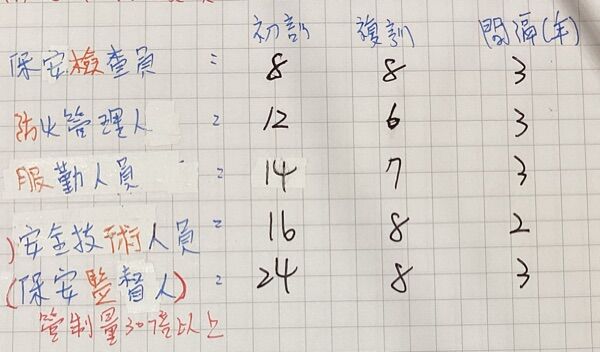 初訓 複訓 間隔(年)
保安檢查員 = 8 8 3
防火管理人 = 12 6 3
服勤人員 = 14 7 3
)安全技術人員 = 16 8 2
(保安監督人) = 24 8 3
管制量30倍以上